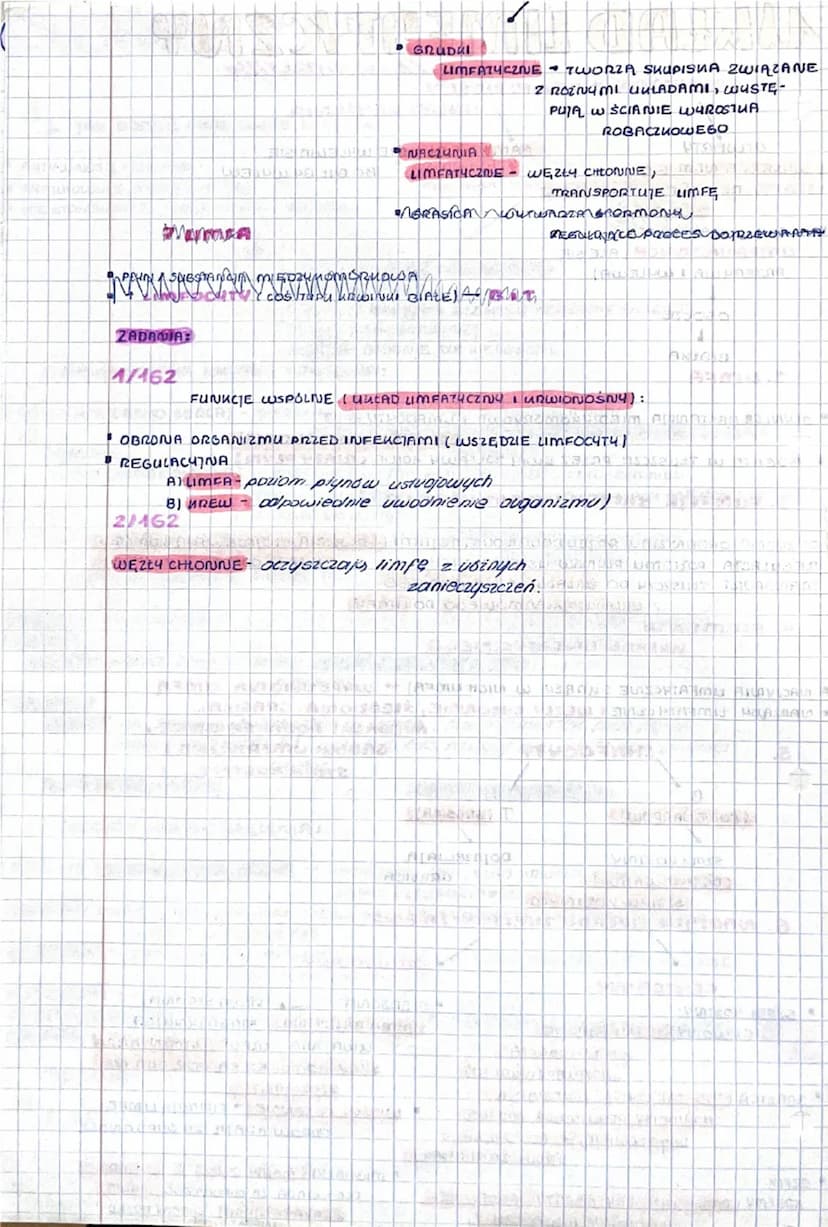 • GRUDKI
LIMFATYCZNE → TWORZĄ SKUPISKA ZWIĄZANE
Z RÓŻNYMI UKŁADAMI, WYSTĘ-
PUJĄ W ŚCIANIE WYROSTKA
ROBACZKOWEGO
• NACZYNIA
LIMFATYCZNE - WĘZŁY CHŁONNE,
TRANSPORTUJE LIMFĘ
• GRASICA WYTWARZA HORMONY,
REGULUJĄCE PROCES DOJRZEWANIA
7. LIMFA
• PEŁNI SUBSTANCJA MIĘDZYKOMÓRKOWA
• LIMFOCYTY (COŚ TYPU KRWINKI BIAŁE) → B i T
ZADANIA:
1/162
FUNKCJE WSPÓLNE (UKŁAD LIMFATYCZNY I KRWIONOŚNY):
• OBRONA ORGANIZMU PRZED INFEKCJAMI (WSZĘDZIE LIMFOCYTY)
• REGULACYJNA
A) LIMFA - poziom płynów ustrojowych
B) KREW - odpowiednie uwodnienie organizmu)
2/162
WĘZŁY CHŁONNE - oczyszczają limfę z różnych
zanieczyszczeń.